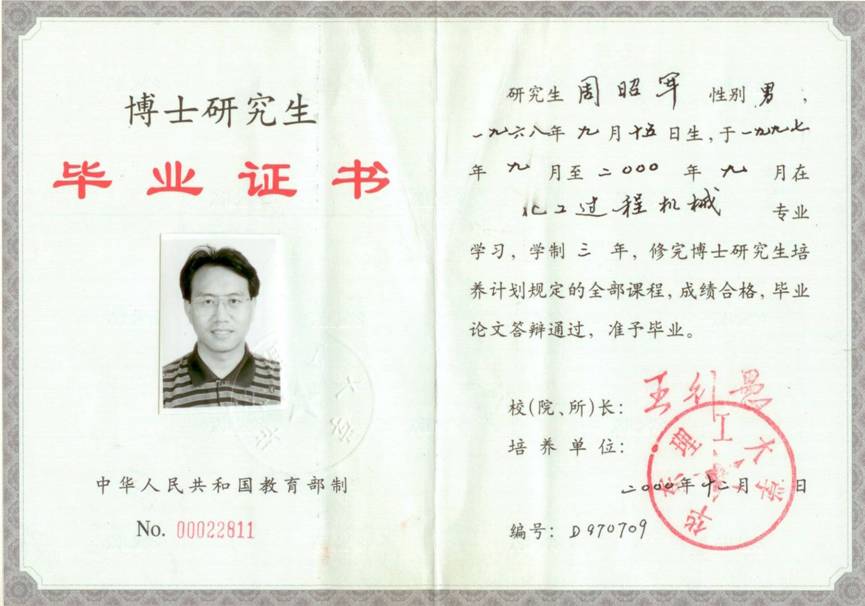 博士研究生
毕业证书
中华人民共和国教育部制
No. 00022811
研究生 周昭军 性别 男，
一九六八年 九 月 十五 日生，于 一九九七
年 九 月至 二000 年 九 月在
化工过程机械 专业
学习，学制 三 年，修完博士研究生培
养计划规定的全部课程，成绩合格，毕业
论文答辩通过，准予毕业。
校(院、所)长： 王行愚
培养单位：
华东理工大学
二000年 十二月 日
编号： D970709